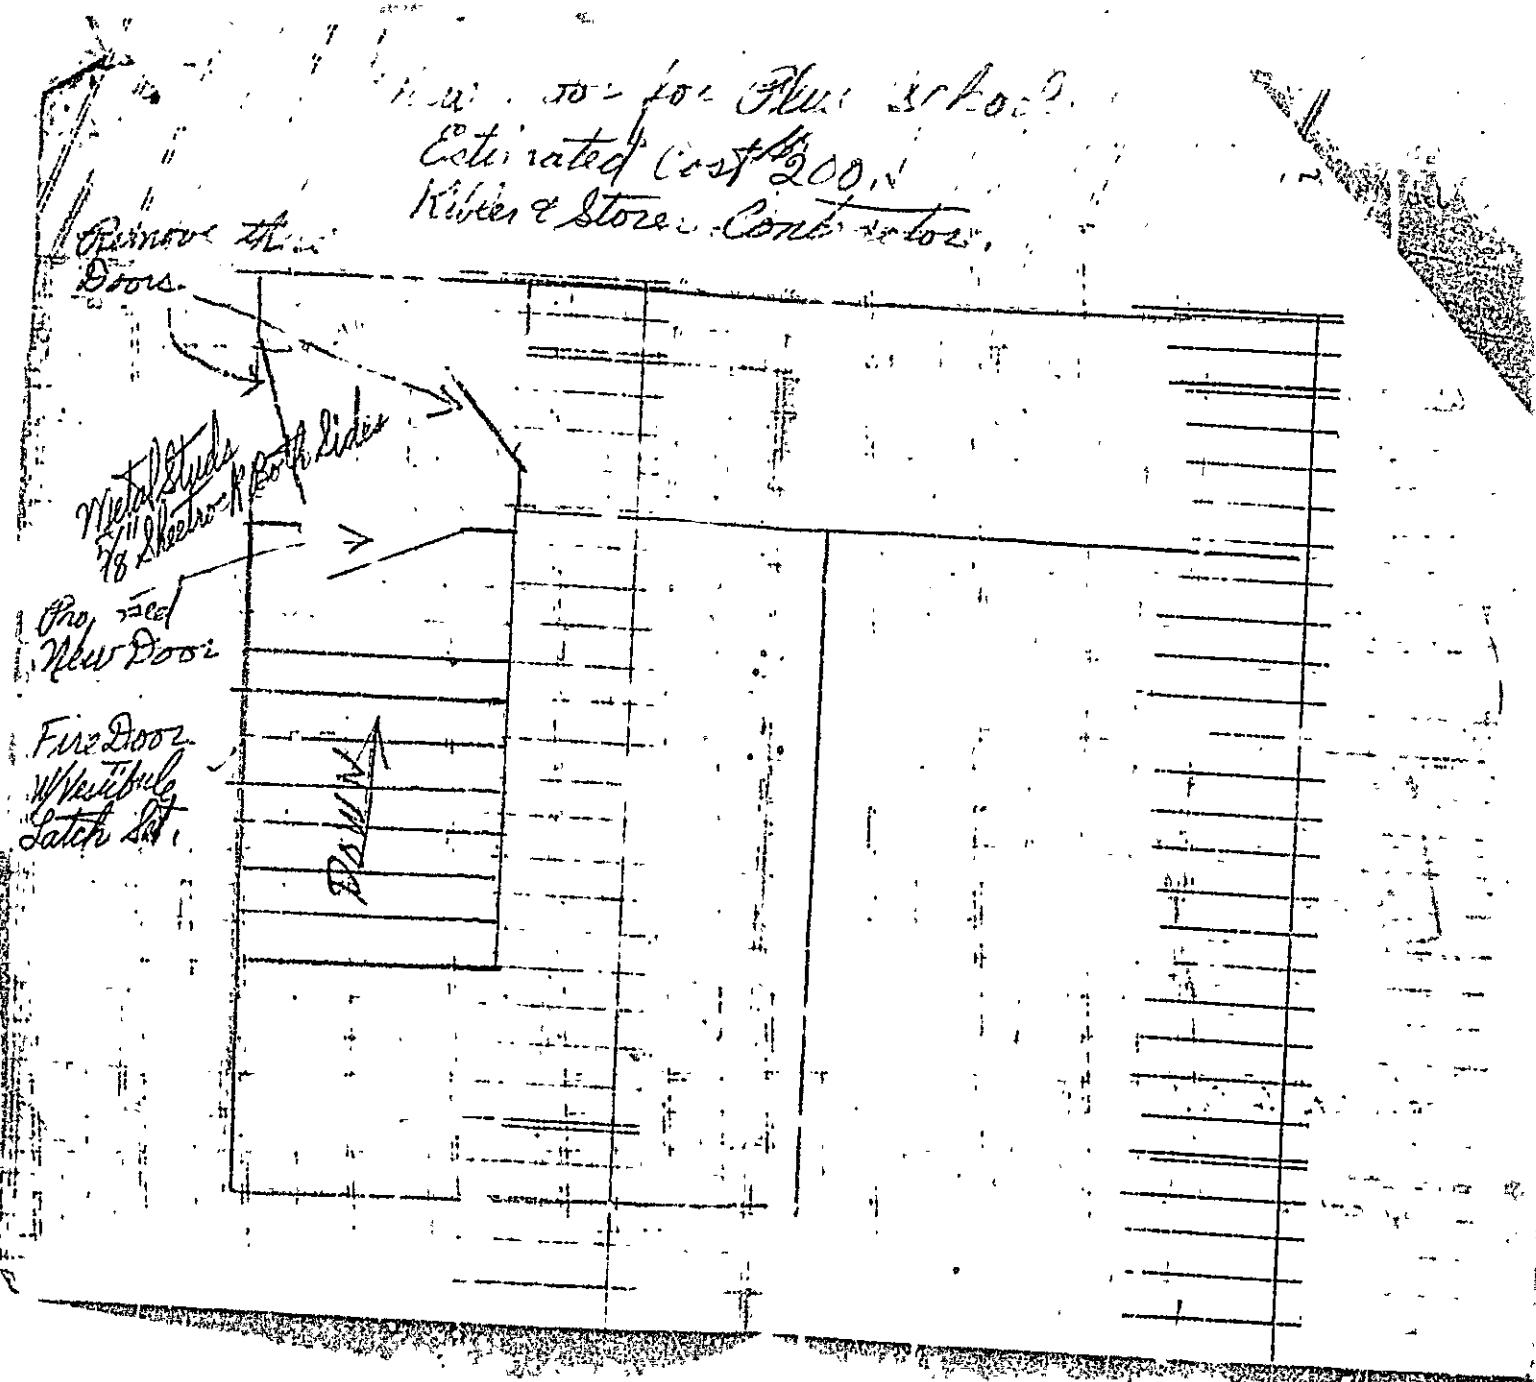 for School
Estimated Cost $200.
& Contractors.
Remove these
Doors.
Metal Studs
5/8" Sheetrock Both Sides
Proposed
New Door
Fire Door
W/Vestibule
Latch Set.
DOWN